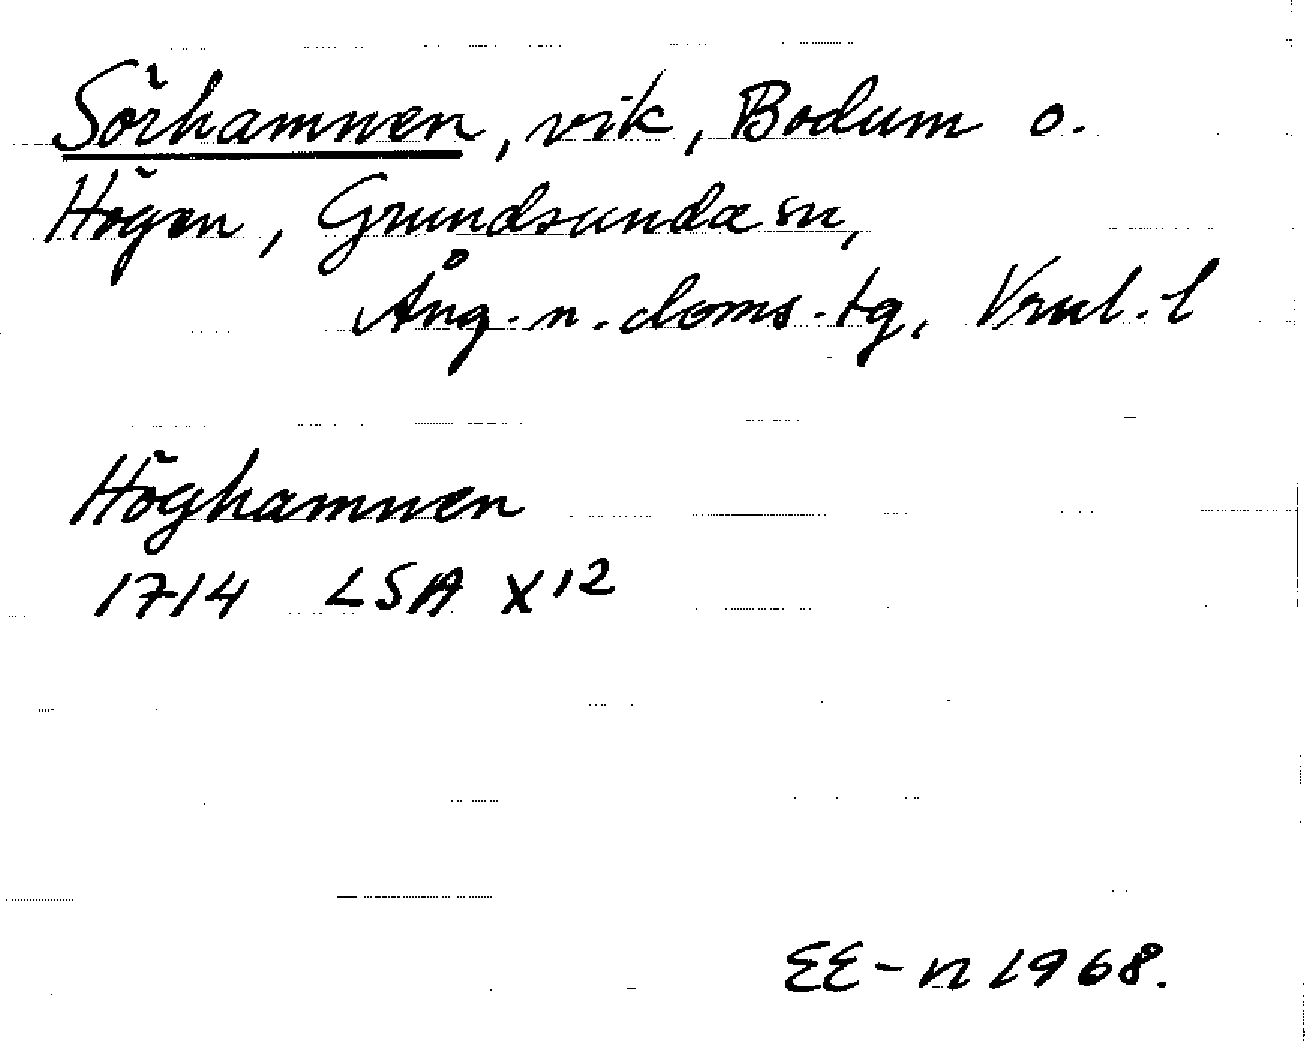 Sörhamnen, vik, Bodum o.
Högen, Grundsunda sn,
Ång. n. doms.-tg, Vrnl. l
Höghamnen
1714 LSA X12
EE-n 1968.